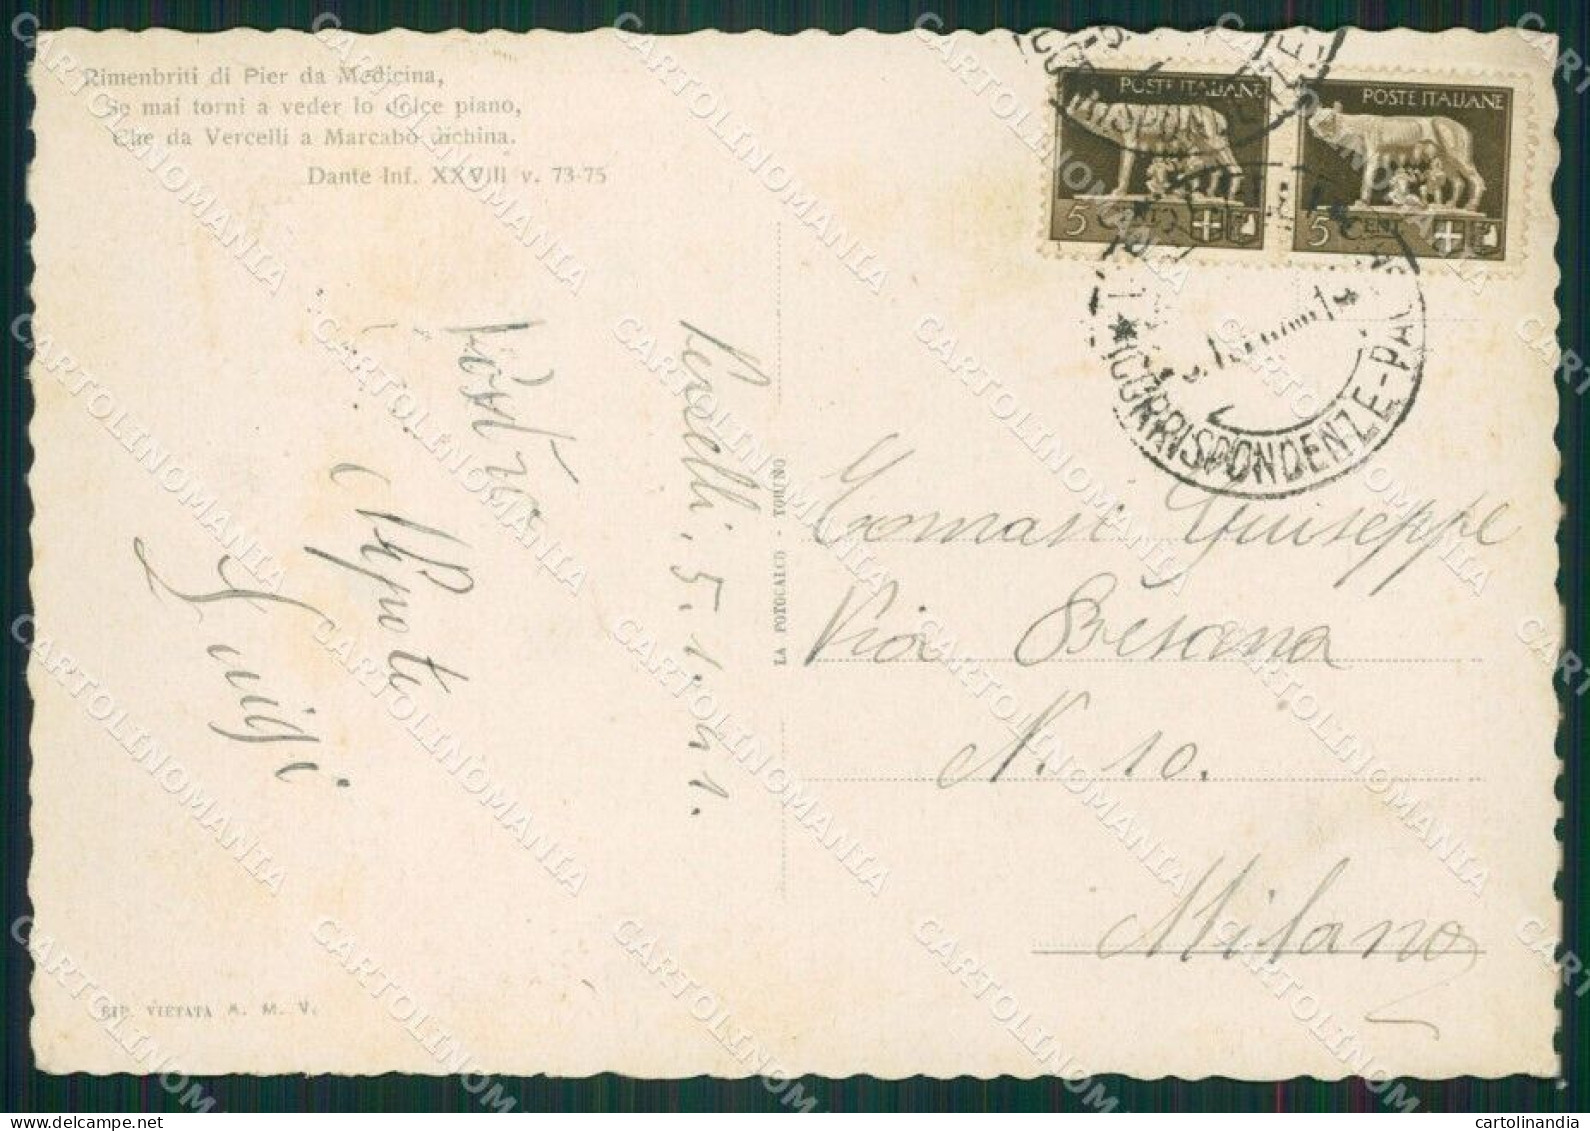 Rimenbriti di Pier da Medicina,
Se mai torni a veder lo dolce piano,
Che da Vercelli a Marcabò dichina.
Dante Inf. XXVIII v. 73-75
POSTE ITALIANE
5 CENT
POSTE ITALIANE
5 CENT
CORRISPONDENZE
(CORRISPONDENZE-PA
Vercelli, 5.1.941.
Vostro
Nipote
Luigi.
LA FOTOCALCO - TORINO
Tomasi Giuseppe
Via Besana
N. 10.
Milano
RIP. VIETATA A. M. V.
CARTOLINOMANIA
cartolinandia